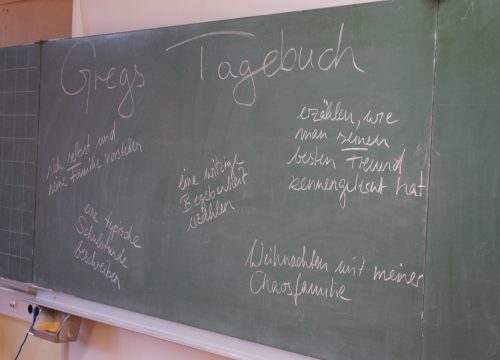 Gregs Tagebuch
sich selbst und
seine Familie vorstellen
eine witzige
Begebenheit
erzählen
erzählen, wie
man seinen
besten Freund
kennengelernt hat
eine typische
Schulstunde
beschreiben
Weihnachten mit meiner
Chaosfamilie